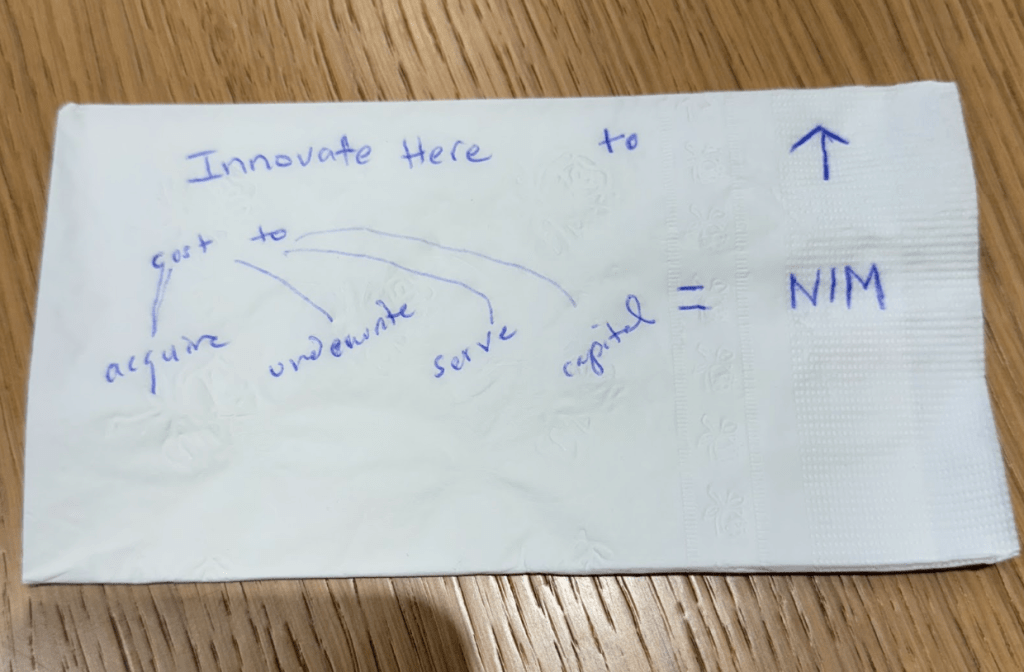 Innovate Here to ↑
cost to
acquire underwrite serve capital = NIM